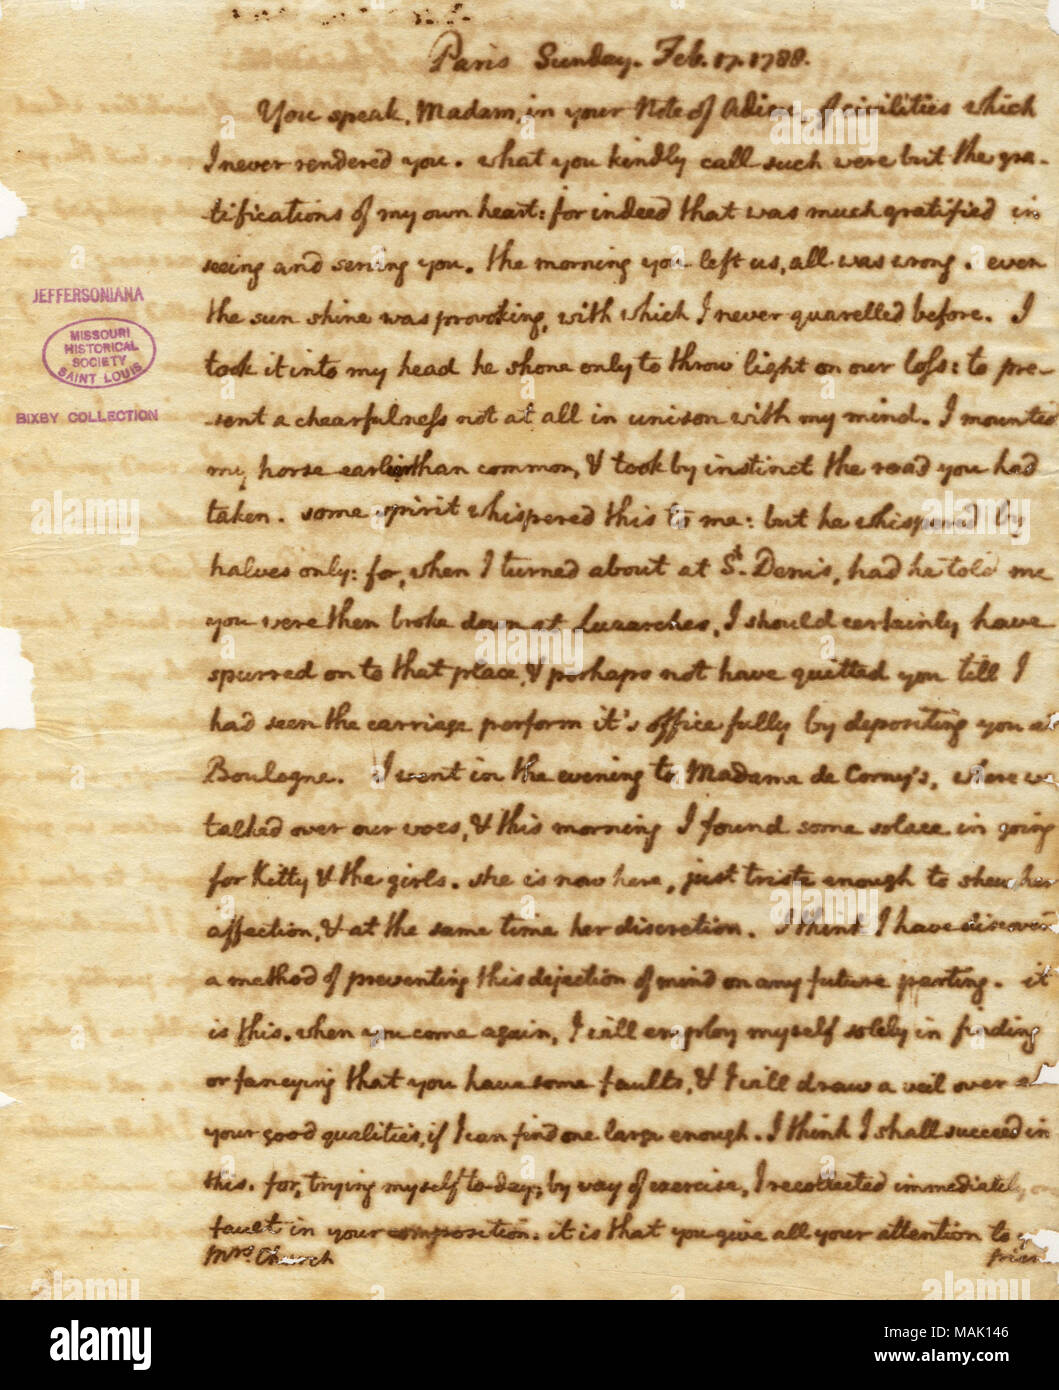 Paris Sunday. Feb. 17. 1788.
You speak, Madam, in your Note of Adieu, of civilities which
I never rendered you. what you kindly call such were but the gra-
tifications of my own heart: for indeed that was much gratified in
seeing and serving you. the morning you left us, all was wrong. even
the sun shine was provoking, with which I never quarelled before. I
took it into my head he shone only to throw light on our loss: to pre-
sent a chearfulness not at all in unison with my mind. I mounted
my horse earlier than common, & took by instinct the road you had
taken. some spirit whispered this to me: but he whispered by
halves only: for, when I turned about at St. Denis, had he told me
you were then broke down at Luzarches, I should certainly have
spurred on to that place, & perhaps not have quitted you till I
had seen the carriage perform it's office fully by depositing you at
Boulogne. I went in the evening to Madame de Corny's, where we
talked over our woes, & this morning I found some solace in going
for Kitty & the girls. she is now here, just triste enough to shew her
affection, & at the same time her discretion. I think I have discover
a method of preventing this dejection of mind on any future parting. it
is this. when you come again, I will employ myself solely in finding
or fancying that you have some faults, & I will draw a veil over
your good qualities, if I can find one large enough. I think I shall succeed in
this. for, trying myself to-day, by way of exercise, I recollected immediately
fault in your composition. it is that you give all your attention to
Mrs. Church
frien
JEFFERSONIANA
MISSOURI
HISTORICAL
SOCIETY
SAINT LOUIS
BIXBY COLLECTION
alamy
alamy
Image ID: MAK146
www.alamy.com